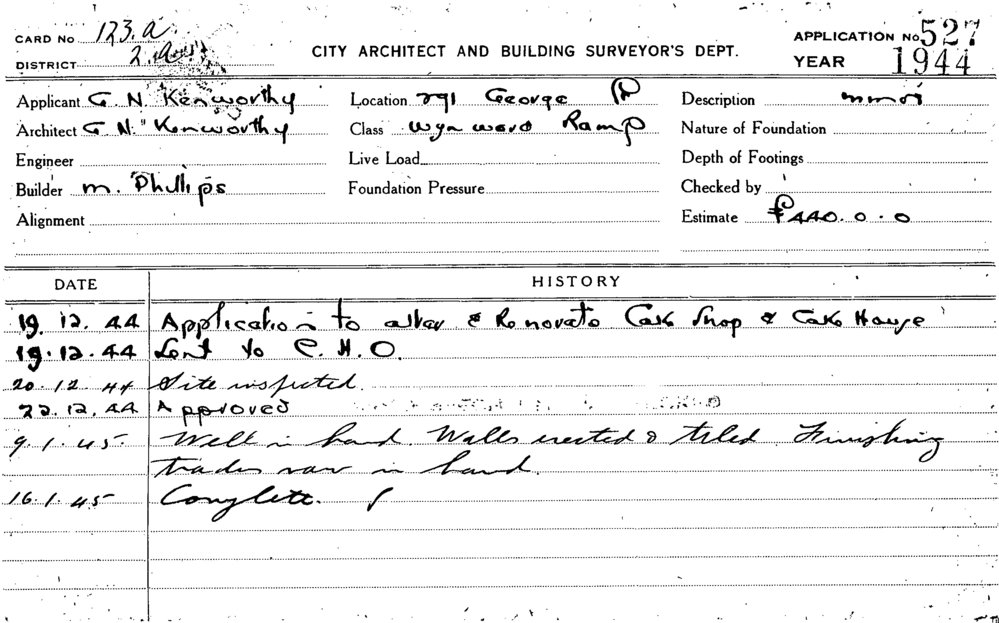 CARD No 123.a
DISTRICT 2.a
CITY ARCHITECT AND BUILDING SURVEYOR'S DEPT.
APPLICATION No 527
YEAR 1944
Applicant G. N. Kenworthy Location 291 George Class Wynward Ramp
Architect G N. Kenworthy
Engineer
Builder M. Phillips
Alignment
Live Load
Foundation Pressure
Description
Nature of Foundation
Depth of Footings
Checked by
Estimate £440.0.0
DATE HISTORY
19.12.44 Application to alter & Renovate Cake Shop & Cake House
19.12.44 Sent to C.H.O.
20.12.44 Site inspected.
22.12.44 Approved
9.1.45 Well in hand. Walls erected & tiled. Finishing
trades now in hand.
16.1.45 Complete.